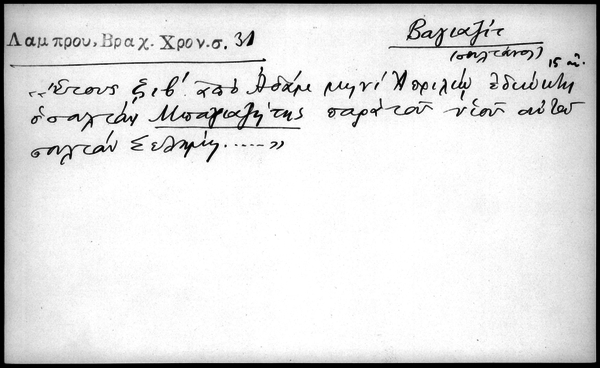 Λαμπρου, Βραχ. Χρον. σ. 31
Βαγιαζίτ
(σουλτάνος)
15 αἰ.
„Ἔτους ξιβ΄. ἀπὸ Ἀδάμ μηνὶ Ἀπριλίῳ ἐδιώχθη
ὁ σουλτὰν Μπαγιαζήτης παρὰ τοῦ υἱοῦ αὐτοῦ
σουλτὰν Σελήμη......."